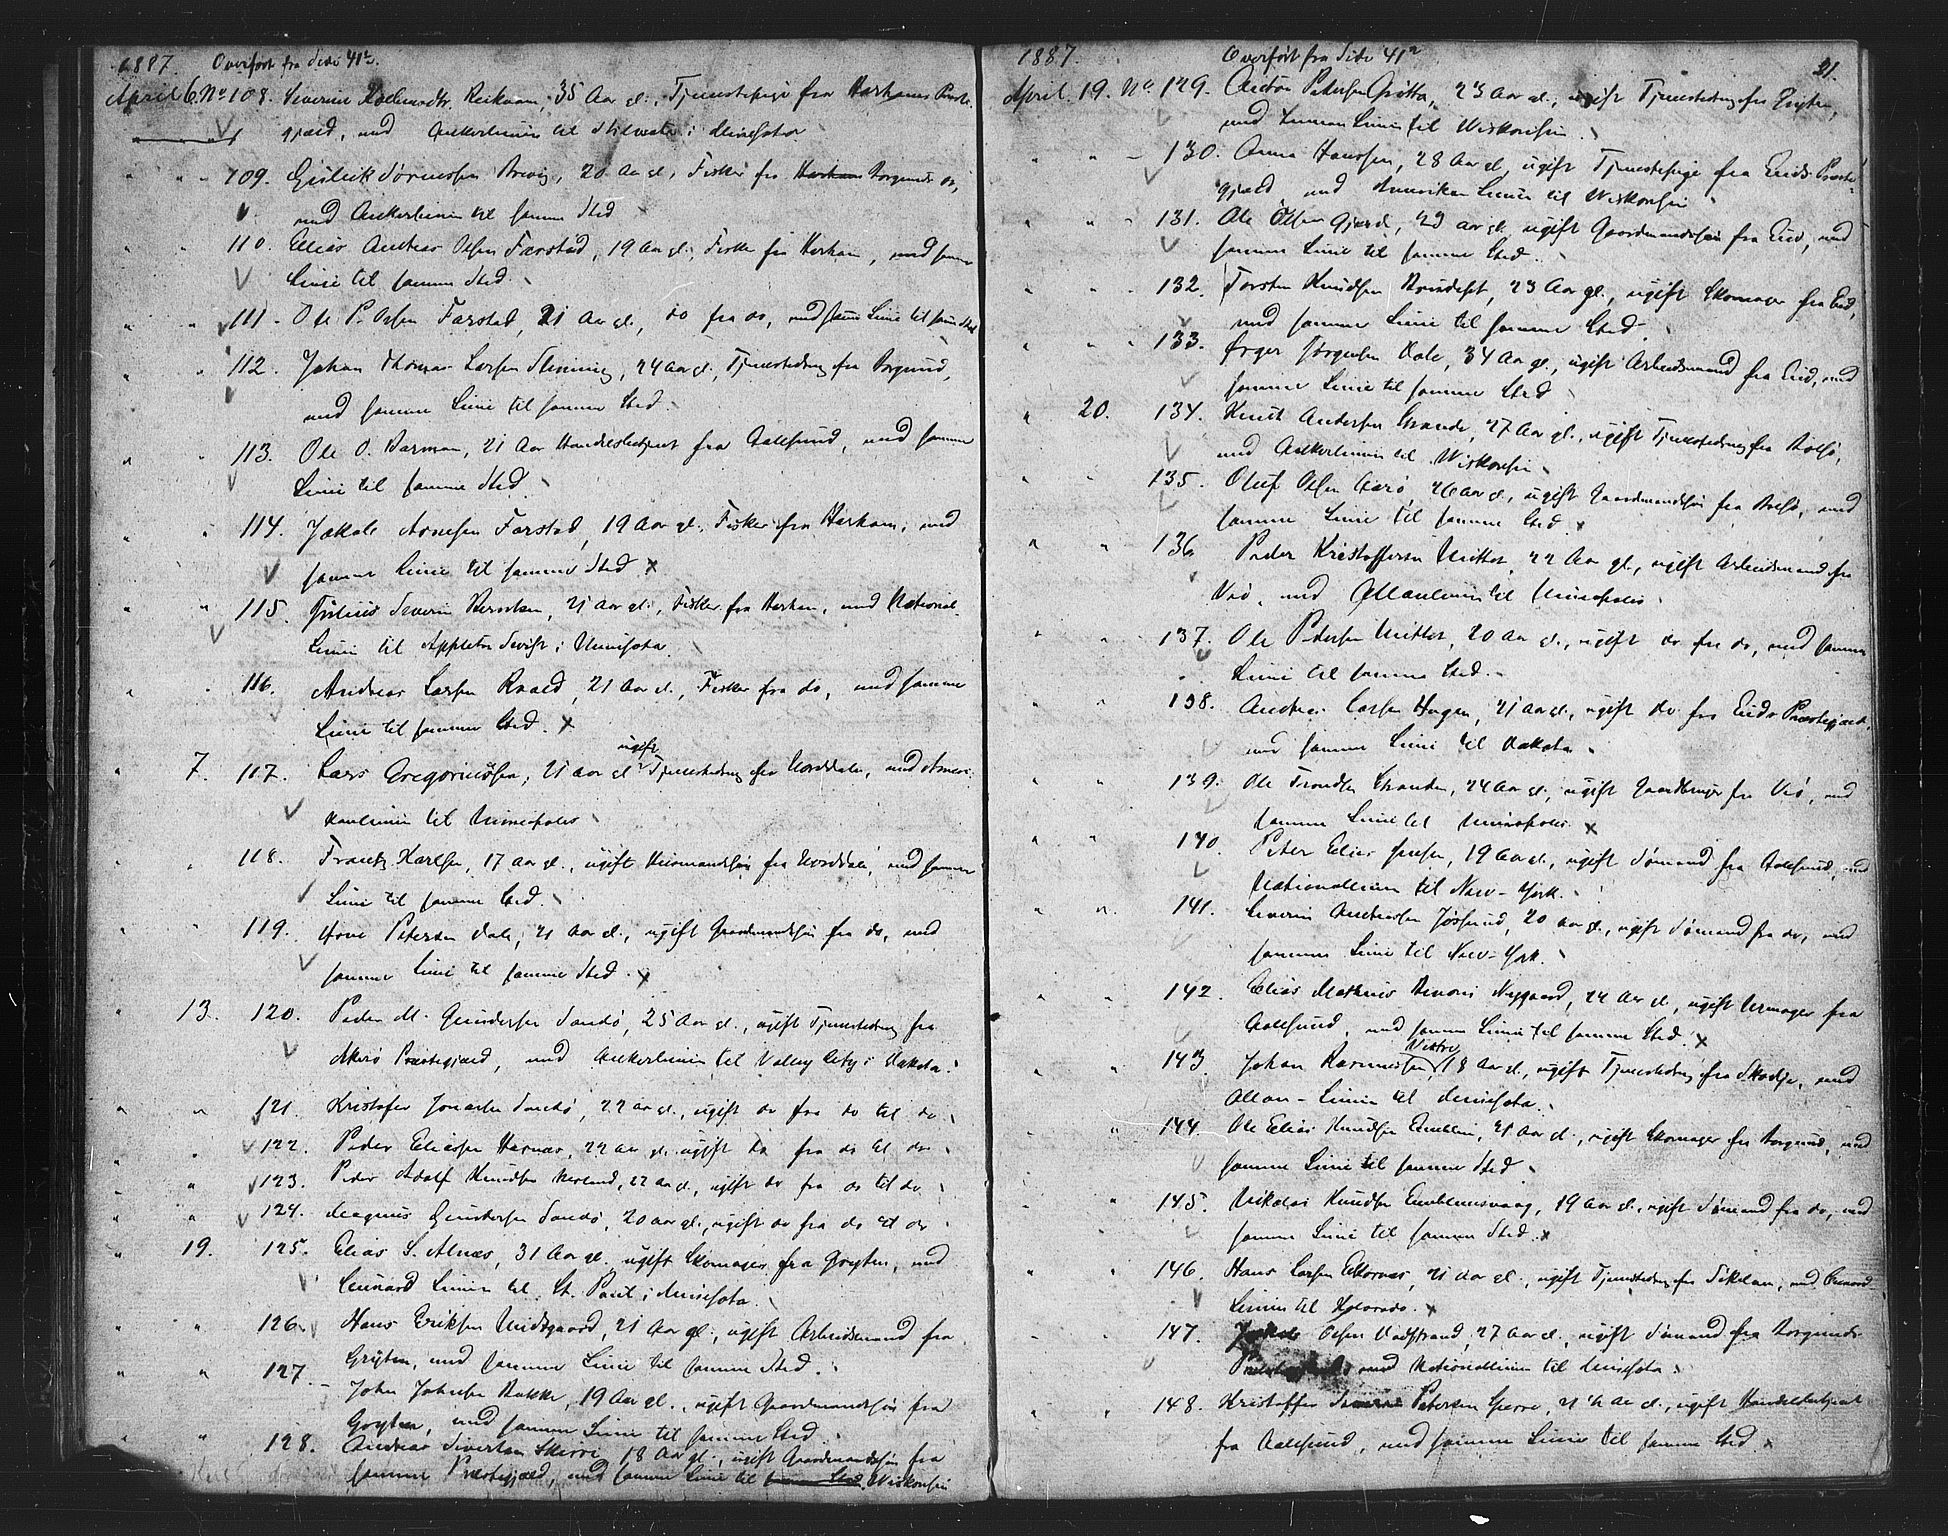 1887. Overført fra Side 41².
April 6. No 108. Severine Reiknæs, 35 Aar gl., Tjenestepige fra Harhams Præste-
gjæld, med Ankerlinien til Stilwater i Minesota
" " 109. Gislik Sørensen Brevig, 20 Aar gl., Fisker fra Borgunds do,
med Ankerlinien til samme Sted
" " 110. Elias Andreas Olsen Farstad, 19 Aar gl., Fisker fra Harham, med samme
Linie til samme Sted.
" " 111. Ole P. Olsen Farstad, 21 Aar gl., do fra do, med samme Linie til samme Sted
" " 112. Johan Thomas Larsen Slinning, 24 Aar gl., Tjenestedreng fra Borgund,
med samme Linie til samme Sted.
" " 113. Ole O. Barman, 21 Aar Handelsbetjent fra Aalesund, med samme
Linie til samme Sted.
" " 114. Jakob Arnesen Farstad, 19 Aar gl., Fisker fra Harham, med
samme Linie til samme Sted x
" " 115. Julius Severin Berntsen, 21 Aar gl., Fisker fra Harham, med National-
Linie til Appleton Swift i Minisota
" " 116. Andreas Larsen Roald, 21 Aar gl., Fisker fra do, med samme
Linie til samme Sted. x
" 7. 117. Lars Gregoriusen, 21 Aar gl. ugift Tjenestedreng fra Norddalen, med Ameri-
kanlinien til Minneapolis
" " 118. Frantz Karlsen, 17 Aar gl., ugift Husmandssøn fra Norddalen, med samme
Linie til samme Sted.
" " 119. Petersen Dale, 21 Aar gl., ugift Gaardmandssøn fra do, med
samme Linie til samme Sted. x
" 13. 120. Peder M. Gundersen Sandø, 25 Aar gl., ugift Tjenestedreng fra
Akerø Præstegjæld, med Ankerlinien til Valley City i Dakota.
" " 121. Kristofer Jonassen Sandø, 22 Aar gl., ugift do fra do til do
" " 122. Peder Eliasen Harnæs, 22 Aar gl. ugift do fra do til do
" " 123. Peder Adolf Knudsen Nerland, 22 Aar gl., ugift do fra do til do
" " 124. Magnus Gundersen Sandø, 20 Aar gl., ugift do fra do til do
" 19. 125. Elias S. Alnæs, 31 Aar gl. ugift Skomager fra Gryten, med
Cunard Linien til St. Paul i Minesota.
" " 126. Hans Eriksen Unidsgaard, 21 Aar gl., ugift Arbeidsmand fra
Gryten, med samme Linie til samme Sted.
" " 127. John Johnsen Bakke, 19 Aar gl., ugift Gaardmandssøn fra
Gryten, med samme Linie til samme Sted
" " 128. Andreas Sivertsen Skorri, 18 Aar gl., ugift Gaardmandssøn fra
samme Præstegjæld, med samme Linie til samme Sted. Wiskonsin
1887. Overført fra Side 41² 31.
April. 19. No. 129. Anton Petersen Gritta, 23 Aar gl., ugift Tjenestedreng fra Gryten,
med Linie til Wiskonsin.
" " 130. Anna Hanssen, 28 Aar gl., ugift Tjenestepige fra Eids Præste-
gjæld med Amerikan Linien til Wiskonsin
" " 131. Ole Olsen Gjerde, 23 Aar gl. ugift Gaardmandssøn fra Eid, med
samme Linie til samme Sted.
" " 132. Torsten Knudsen, 23 Aar gl., ugift Skomager fra Eid,
med samme Linie til samme Sted.
" " 133. Jørgensen Dale, 34 Aar gl., ugift Arbeidsmand fra Eid, med
samme Linie til samme Sted
" 20. 134. Knut Andersen Grande, 27 Aar gl., ugift Tjenestedreng fra Bolsø,
med Ankerlinien til Wiskonsin
" " 135. Oluf Olsen Aarø, 26 Aar gl., ugift Gaardmandssøn fra Bolsø, med
samme Linie til samme Sted x
" " 136 Peder Kristoffersen Mittet, 22 Aar gl., ugift Arbeidsmand fra
Veø, med Allanlinien til Minepolis.
" " 137. Ole Petersen Mittet, 20 Aar gl., ugift do fra do, med samme
Linie til samme Sted.
" " 138. Andreas Larsen Hagen, 21 Aar gl., ugift do fra Eids Præstegjæld,
med samme Linie til Dakota
" " 139. Ole Trondsen Stranden, 24 Aar gl., ugift Gaardbruger fra Veø, med
samme Linie til Minepolis. x
" " 140. Peter Elias Jensen, 19 Aar gl., ugift Sømand fra Aalesund, med
Nationallinien til New-York.
" " 141. Severin Andreassen Jøssund, 20 Aar gl., ugift Sømand fra do, med
samme Linie til New-York.
" " 142. Elias Mathias Benoni Nygaard, 22 Aar gl., ugift Urmager fra
Aalesund, med samme Linie til samme Sted. x
143. Johan Rasmussen Vestre, 18 Aar gl., ugift Tjenestedreng fra Skodje, med
Allan-Linien til Minesota.
" " 144. Ole Elias Knudsen Emblem, 21 Aar gl., ugift Skomager fra Borgund, med
samme Linie til samme Sted
" 145. Nikolai Knudsen Emblemsvaag, 19 Aar gl., ugift Sømand fra do, med
samme Linie til samme Sted. x
" " 146. Hans Larsen Ekornæs, 21 Aar gl., ugift Tjenestedreng fra Sökelven, med Cunard-
Linien til Kolorado. x
" " 147. Jakob Olsen Vadstrand, 27 Aar gl., ugift Sømand fra Borgunds
Præstegjæld med Nationallinien til Minesota.
" " 148. Kristoffer Petersen Sperre, 21 ½ Aar gl., ugift Handelsbetjent
fra Aalesund, med samme Linie til samme Sted. x